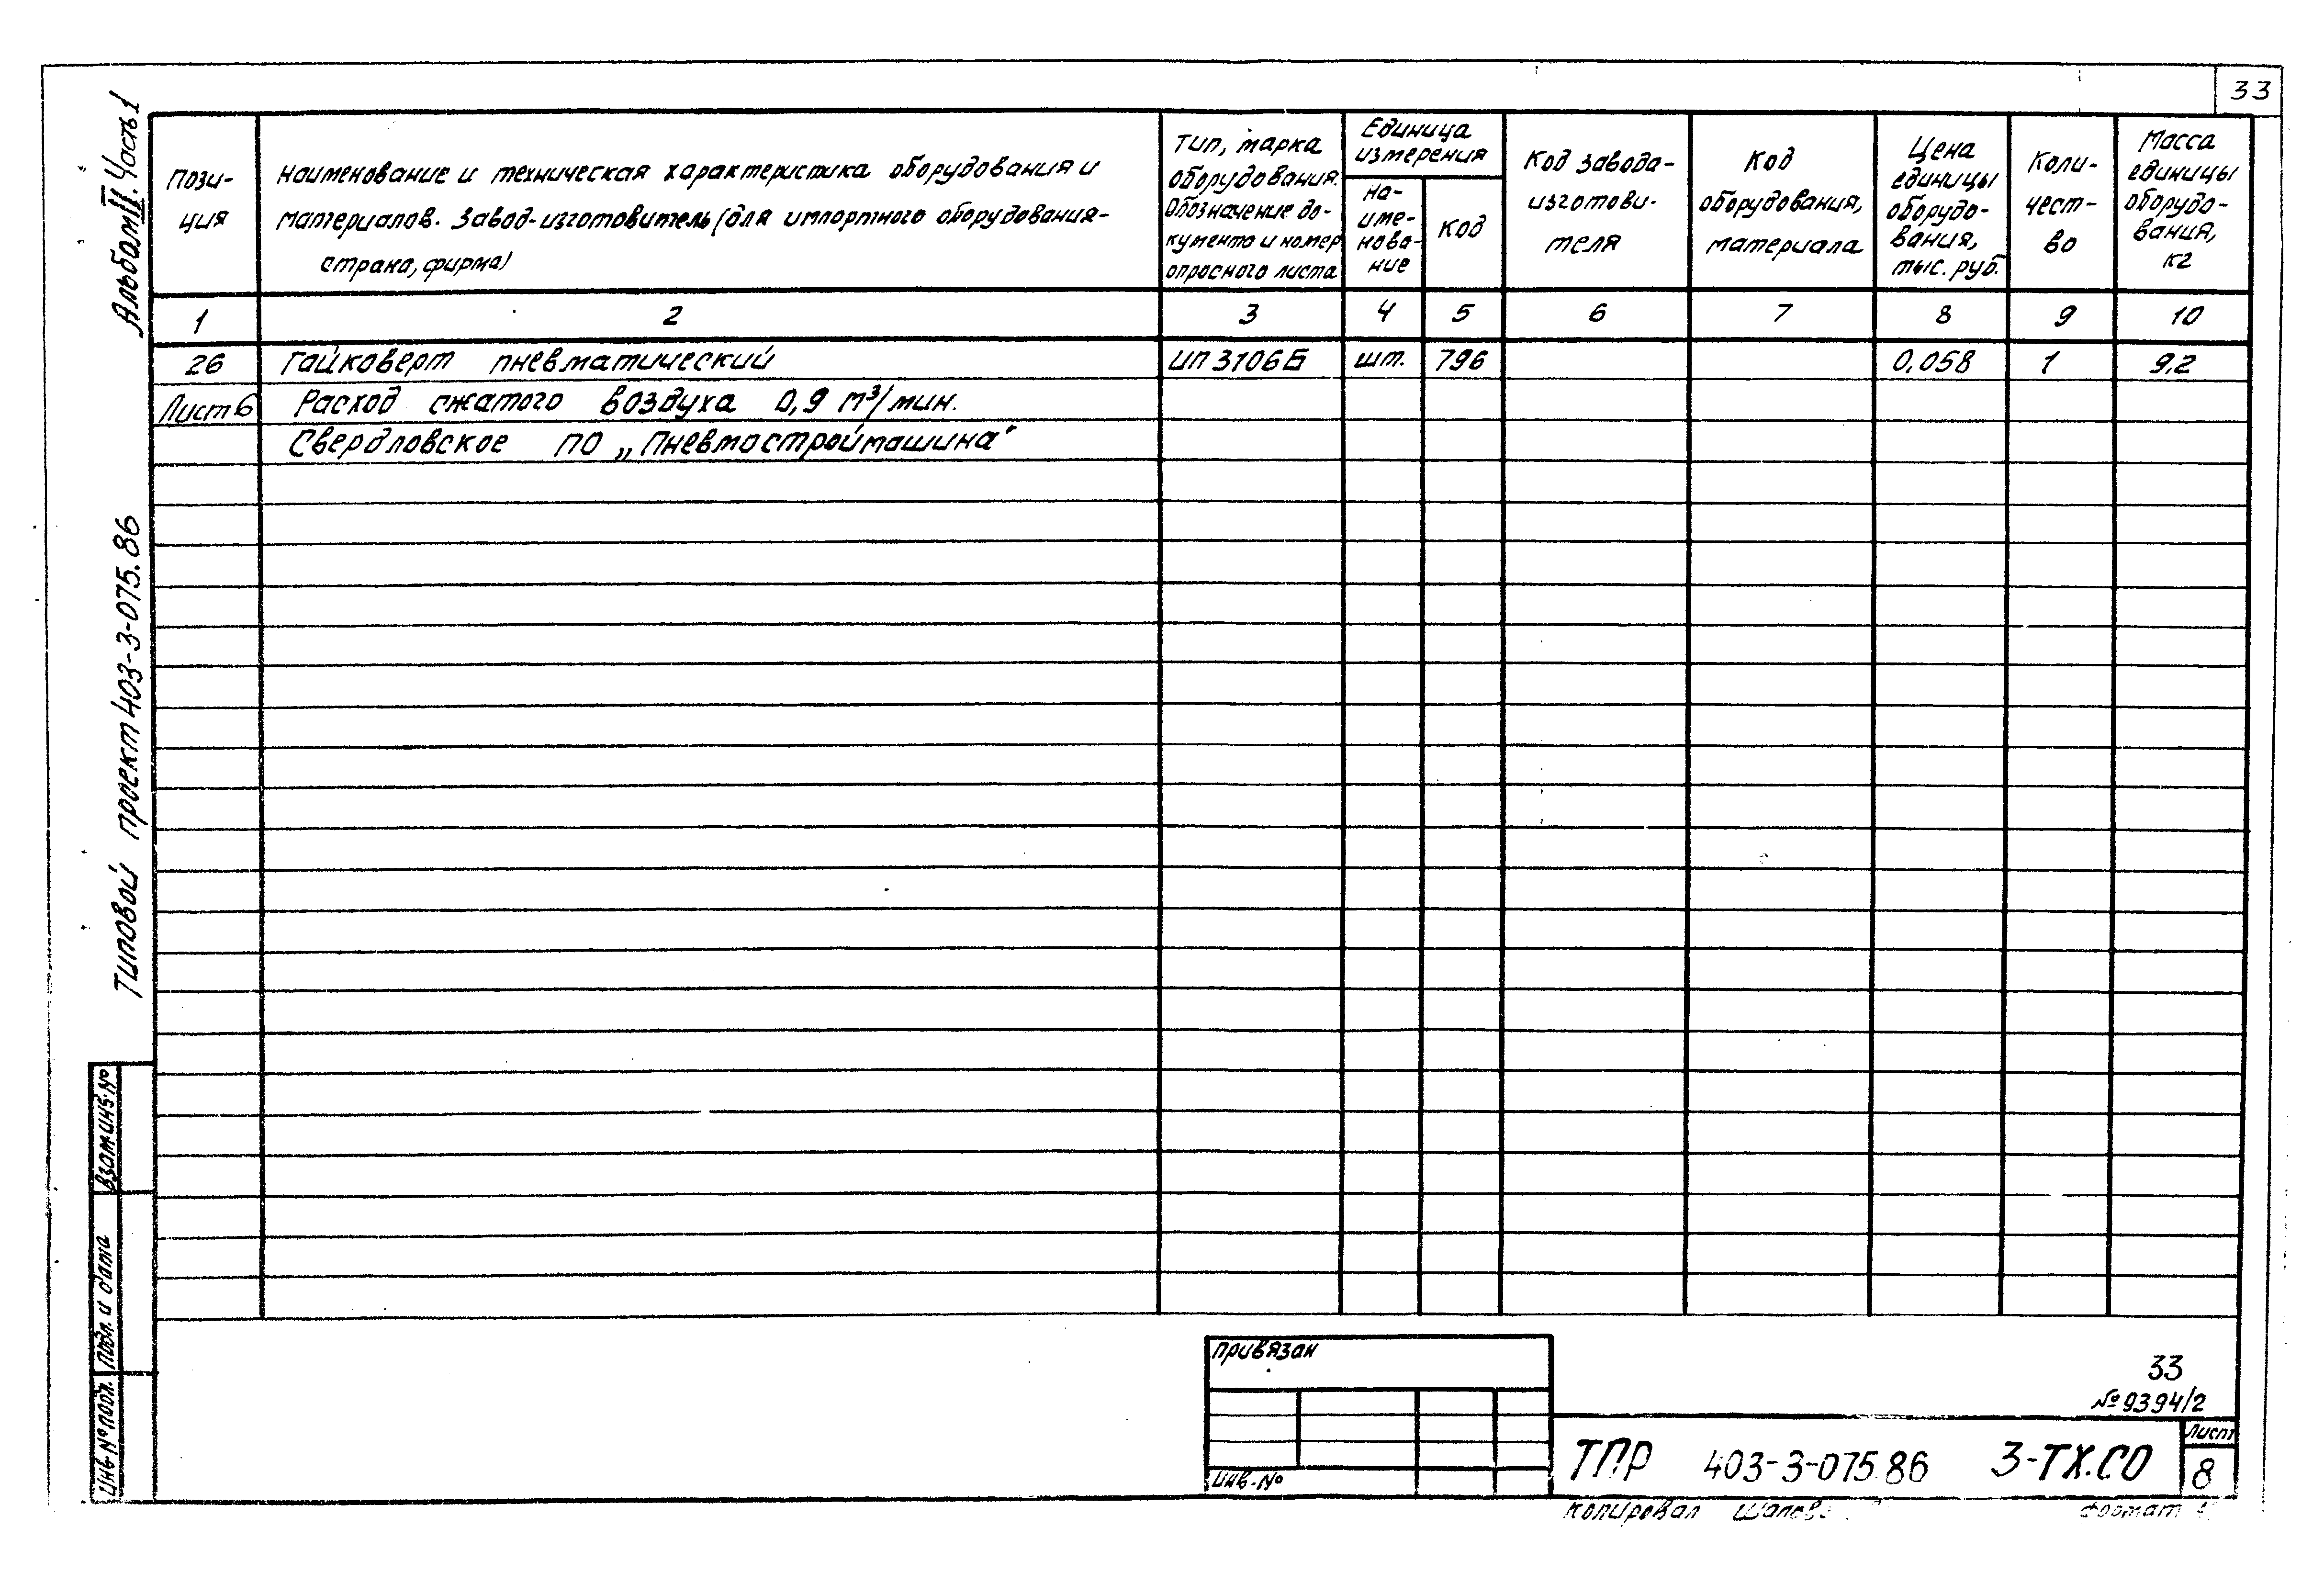 33
Альбом II. Часть 1
Типовой проект 403-3-075.86
Пози-
ция
Наименование и техническая характеристика оборудования и
материалов. Завод-изготовитель (для импортного оборудования-
страна, фирма)
Тип, марка
оборудования.
Обозначение до-
кумента и номер
опросного листа
Единица
измерения
на-
име-
нова-
ние
Код
Код завода-
изготови-
теля
Код
оборудования,
материала
Цена
единицы
оборудо-
вания,
тыс. руб.
Коли-
чест-
во
Масса
единицы
оборудо-
вания,
кг
1 2 3 4 5 6 7 8 9 10
26 Гайковерт пневматический ИП 3106Б шт. 796 0,058 1 9,2
Лист 6 Расход сжатого воздуха 0,9 м³/мин.
Свердловское ПО „Пневмостроймашина"
Взам.инв.№
Подл. и дата
Инв.№ подл.
Привязан
Инв.№
33
№9394/2
ТПР 403-3-075.86 3-ТХ.СО
Лист
8
Копировал
Формат